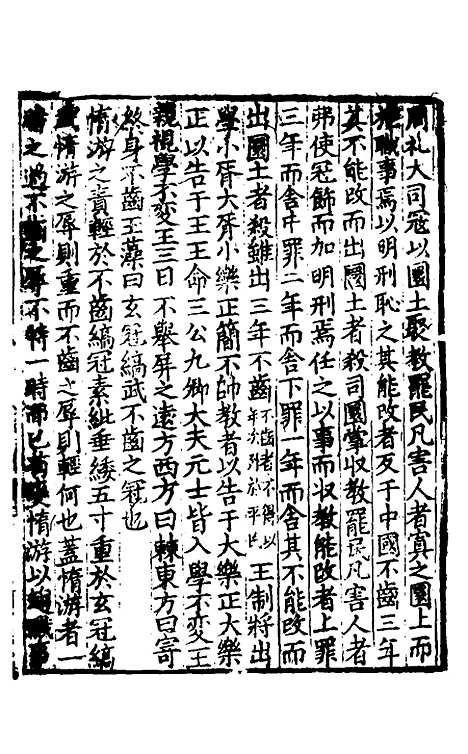 周礼大司冦以圜土聚教罷民凡害人者寘之圜土而
職事焉以明刑恥之其能改者反于中國不齒三年
其不能改而出圜土者殺司圜掌収教罷民凡害人者
弗使冠飾而加明刑焉任之以事而収教能改者上罪
三年而舎中罪二年而舎下罪一年而舎其不能改而
出圜土者殺雖出三年不齒不齒者不得以年次列於平民王制將出
學小胥大胥小樂正簡不帥教者以告于大樂正大樂
正以告于王王命三公九卿大夫元士皆入學不變王
親視學不變王三日不舉屏之逺方西方曰棘東方曰寄
終身不齒玉藻曰玄冠縞武不齒之冠也
惰游之責輕於不齒縞冠素紕垂緌五寸重於玄冠縞
惰游之辱則重而不齒之辱則輕何也蓋惰游者一
之過不齒之辱不特一時而已惰游以職事